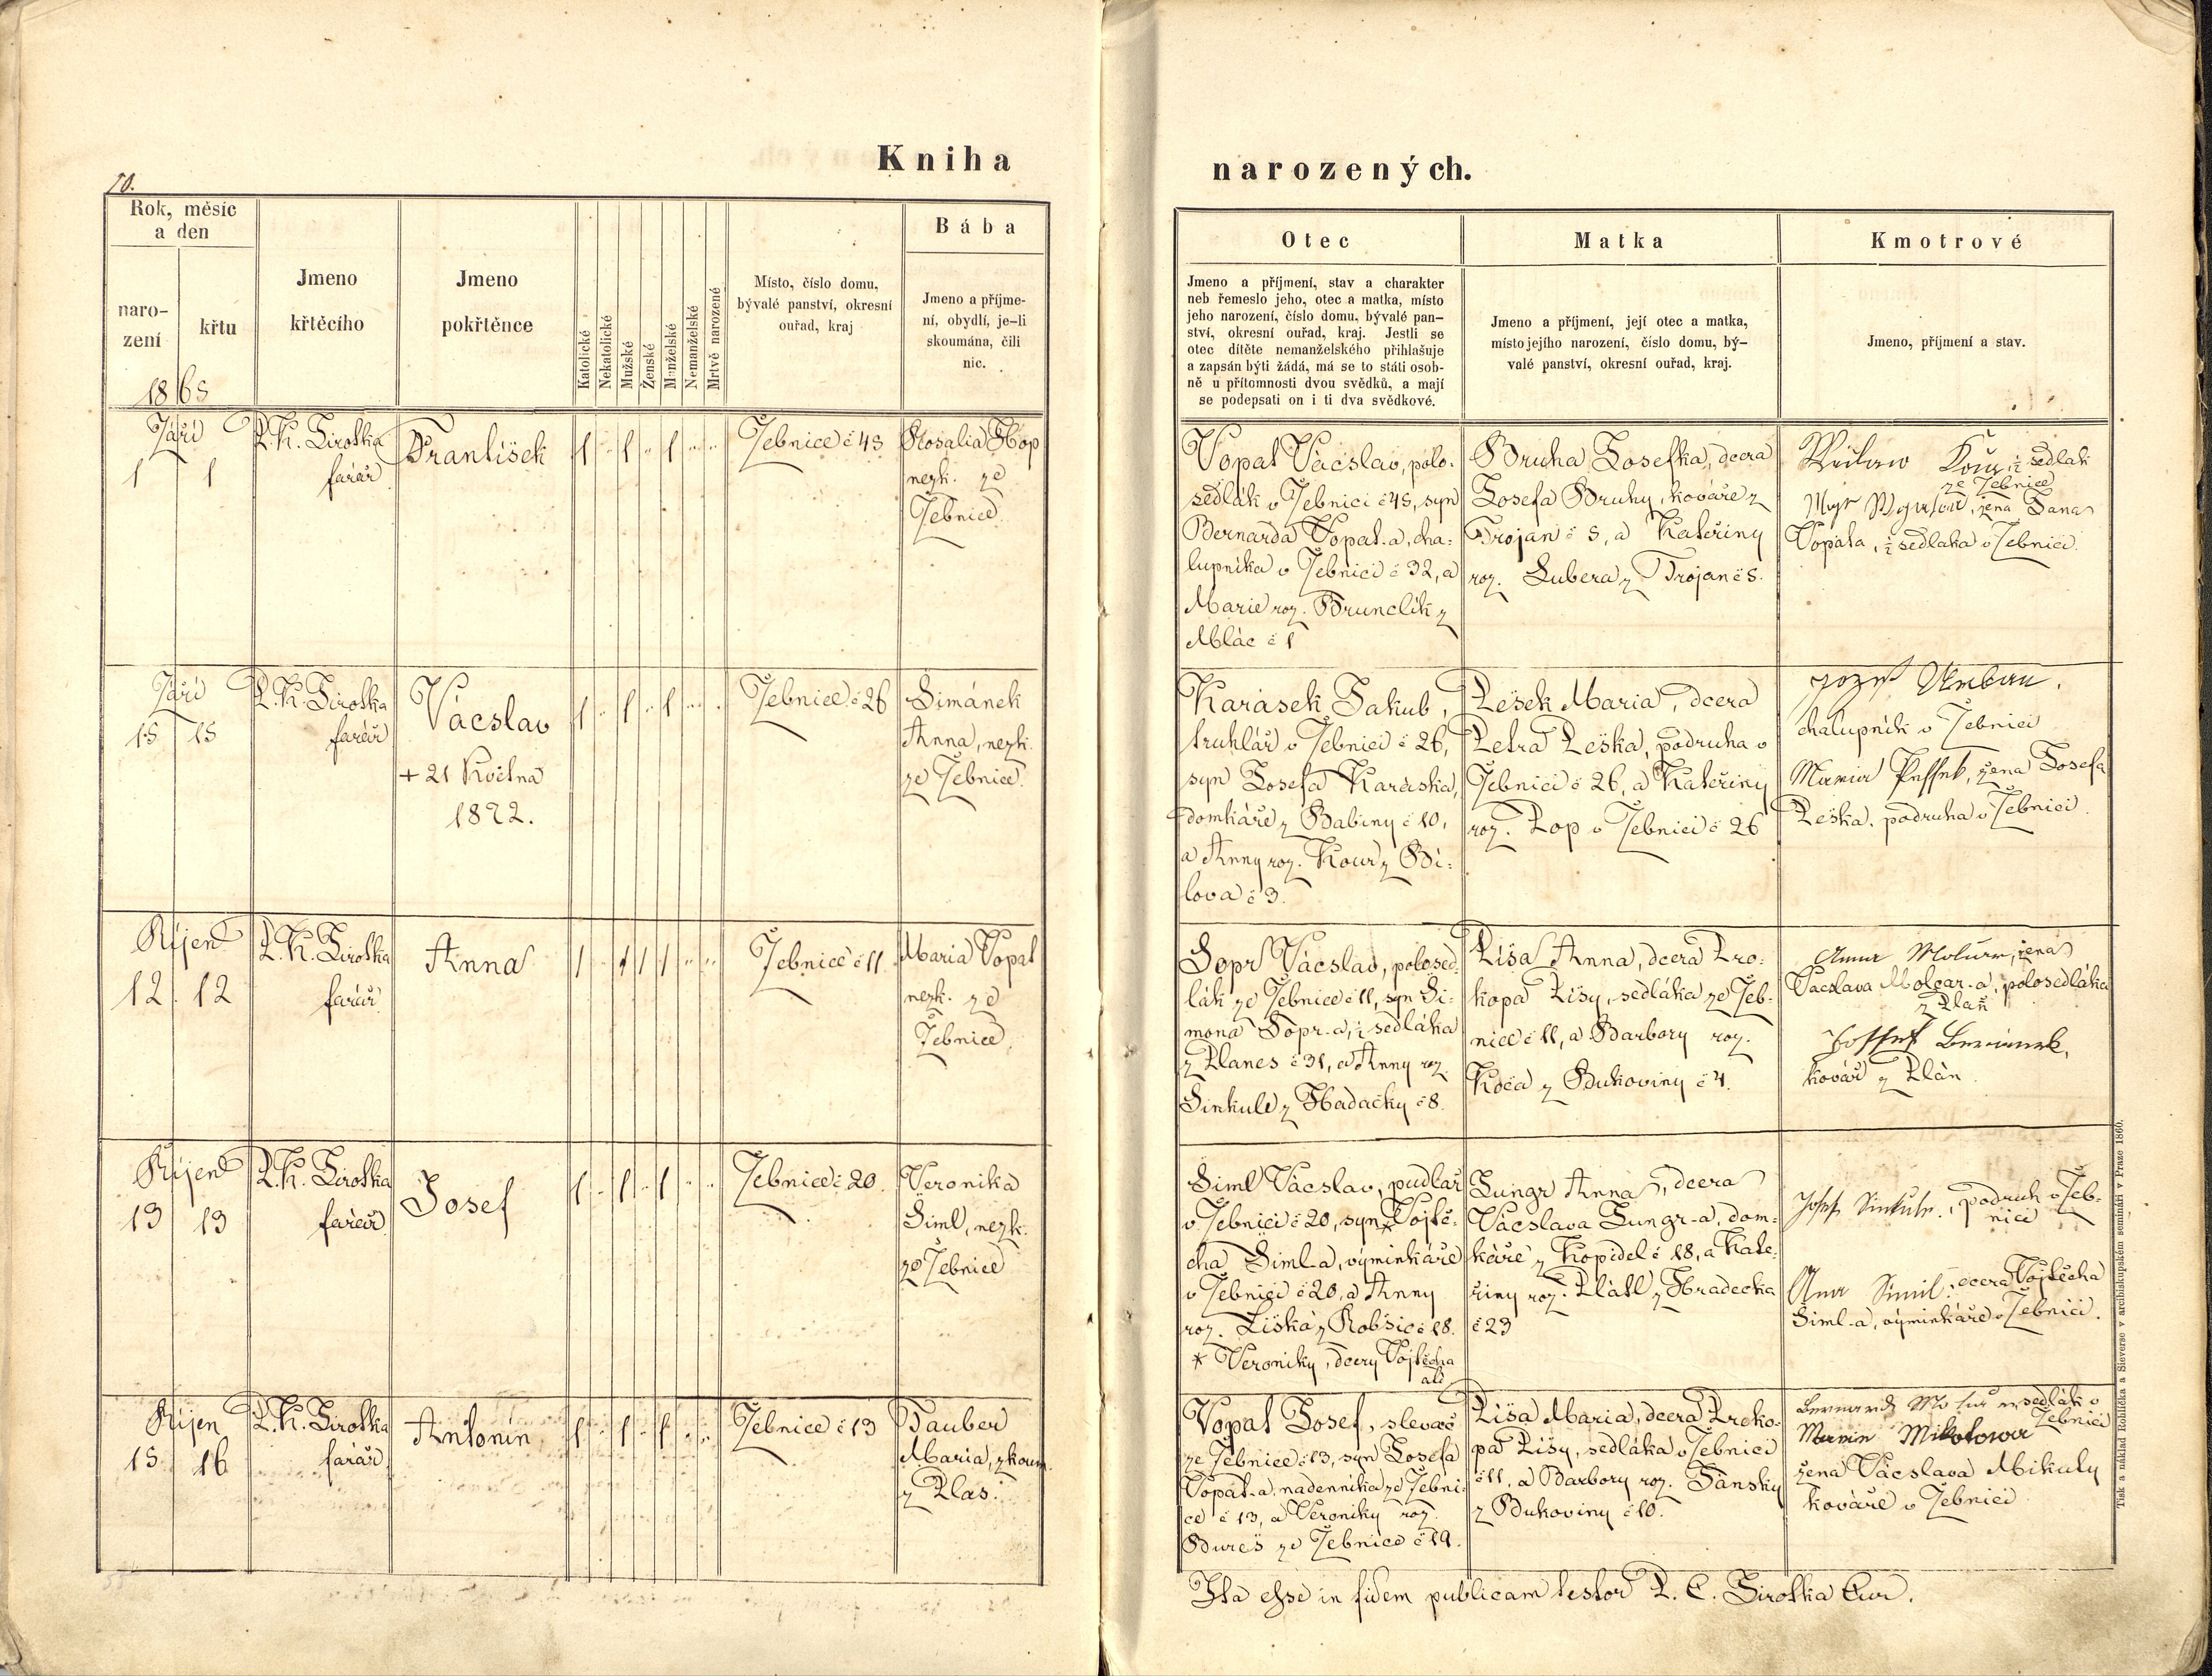 Kniha narozených.
70.
Rok, měsíc
a den
naro-
zení
křtu
1865
Jmeno
křtěcího
Jmeno
pokřtěnce
Katolické
Nekatolické
Mužské
Ženské
Manželské
Nemanželské
Mrtvě narozené
Místo, číslo domu,
bývalé panství, okresní
ouřad, kraj
Bába
Jmeno a příjme-
ní, obydlí, je-li
skoumána, čili
nic.
Otec
Jmeno a příjmení, stav a charakter
neb řemeslo jeho, otec a matka, místo
jeho narození, číslo domu, bývalé pan-
ství, okresní ouřad, kraj. Jestli se
otec dítěte nemanželského přihlašuje
a zapsán býti žádá, má se to státi osob-
ně u přítomnosti dvou svědků, a mají
se podepsati on i ti dva svědkové.
Matka
Jmeno a příjmení, její otec a matka,
místo jejího narození, číslo domu, bý-
valé panství, okresní ouřad, kraj.
Kmotrové
Jmeno, příjmení a stav.
Září
1 1
P. K. Sirotka
farář
František
Žebnice č 45
Rosalia Hop
nezk. ze
Žebnice
Vopat Vácslav, polo-
sedlák v Žebnici č 45, syn
Bernarda Vopat-a, cha-
lupníka v Žebnici č 32, a
Marie roz. Brunclík z
Mláč č 1
Bruha Josefka, dcera
Josefa Bruhy, kováře z
Trojan č 5, a Kateřiny
roz. Lubera z Trojan č 5.
½ sedlák
ze Žebnice
žena Jana
Vopata, ½ sedláka v Žebnici.
Září
15 15
P. K. Sirotka
farář
Vácslav
+ 21 Května
1822.
Žebnice č 26
Šimánek
Anna, nezk.
ze Žebnice
Karásek Jakub,
truhlář v Žebnici č 26,
syn Josefa Karáska,
domkáře z Babiny č 10,
a Anny roz. Kour z Bí-
lova č 3.
Pešek Maria, dcera
Petra Peška, podruha v
Žebnici č 26, a Kateřiny
roz. Pop v Žebnici č 26
Jozef Urban.
chalupník v Žebnici
Maria Pessek, žena Josefa
Peška, podruha v Žebnici.
Říjen
12. 12
P. K. Sirotka
farář
Anna
Žebnice č 11
Maria Vopat
nezk. ze
Žebnice
Šopr Vácslav, polosed-
lák ze Žebnice č 11, syn Ši-
mona Šopr-a, ½ sedláka
z Planes č 31, a Anny roz.
Šinkule z Hadačky č 8.
Liša Anna, dcera Pro-
kopa Lišy, sedláka ze Žeb-
nice č 11, a Barbory roz.
Kdéa z Bukoviny č 4.
žena
Vacslava Molcar-a, polosedláka
z Plaň
kovář z Plán
Říjen
13 13
P. K. Sirotka
farář
Josef
Žebnice č 20.
Veronika
Šiml, nezk.
ze Žebnice
Šiml Vácslav, pudlař
v Žebnici č 20, syn * Vojtě-
cha Šiml-a, výminkáře
v Žebnici č 20, a Anny
roz. Liška z Robšic č 18.
* Veroniky, dcery Vojtěcha
atd
Lungr Anna, dcera
Vácslava Lungr-a, dom-
káře z Kopidel č 18, a Kate-
řiny roz. Plátl z Hradecka
č 23
Josef Sinkule, podruh v Žeb-
nici
Ana Siml, dcera Vojtěcha
Šiml-a, výminkáře v Žebnici.
Říjen
15 16
P. K. Sirotka
farář
Antonín
Žebnice č 13
Tauber
Maria, zkoum.
z Plas.
Vopat Josef, slevač
ze Žebnice č 13, syn Josefa
Vopat-a, nadenníka ze Žebni-
ce č 13, a Veroniky roz.
Bureš ze Žebnice č 19.
Liša Maria, dcera Proko-
pa Lišy, sedláka v Žebnici
č 11, a Barbory roz. Jánský
z Bukoviny č 10.
sedlák v
Žebnici
Mikotowa
žena Vácslava Mikuly
kováře v Žebnici
Ita esse in fidem publicam testor P. C. Sirotka Cur.
Tisk a náklad Rohlíčka a Sieverse v arcibiskupském semináři v Praze 1860.